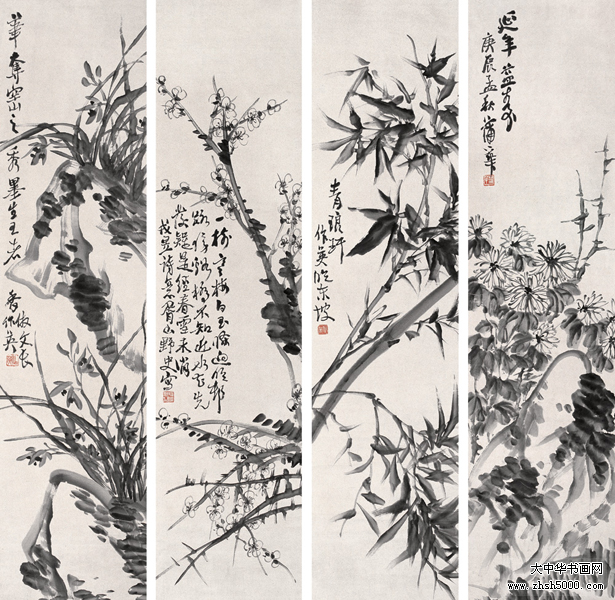 延年益壽
庚辰孟秋蒲華
青琅玕
作英臨東坡
一樹寒梅白玉條迥臨村
路傍谿橋不知近水花先
發疑是經春雪未消
胥山野史寫
筆奪空山之秀墨生王者
香
仿文長
作英
大中华书画网
www.zhsh5000.com